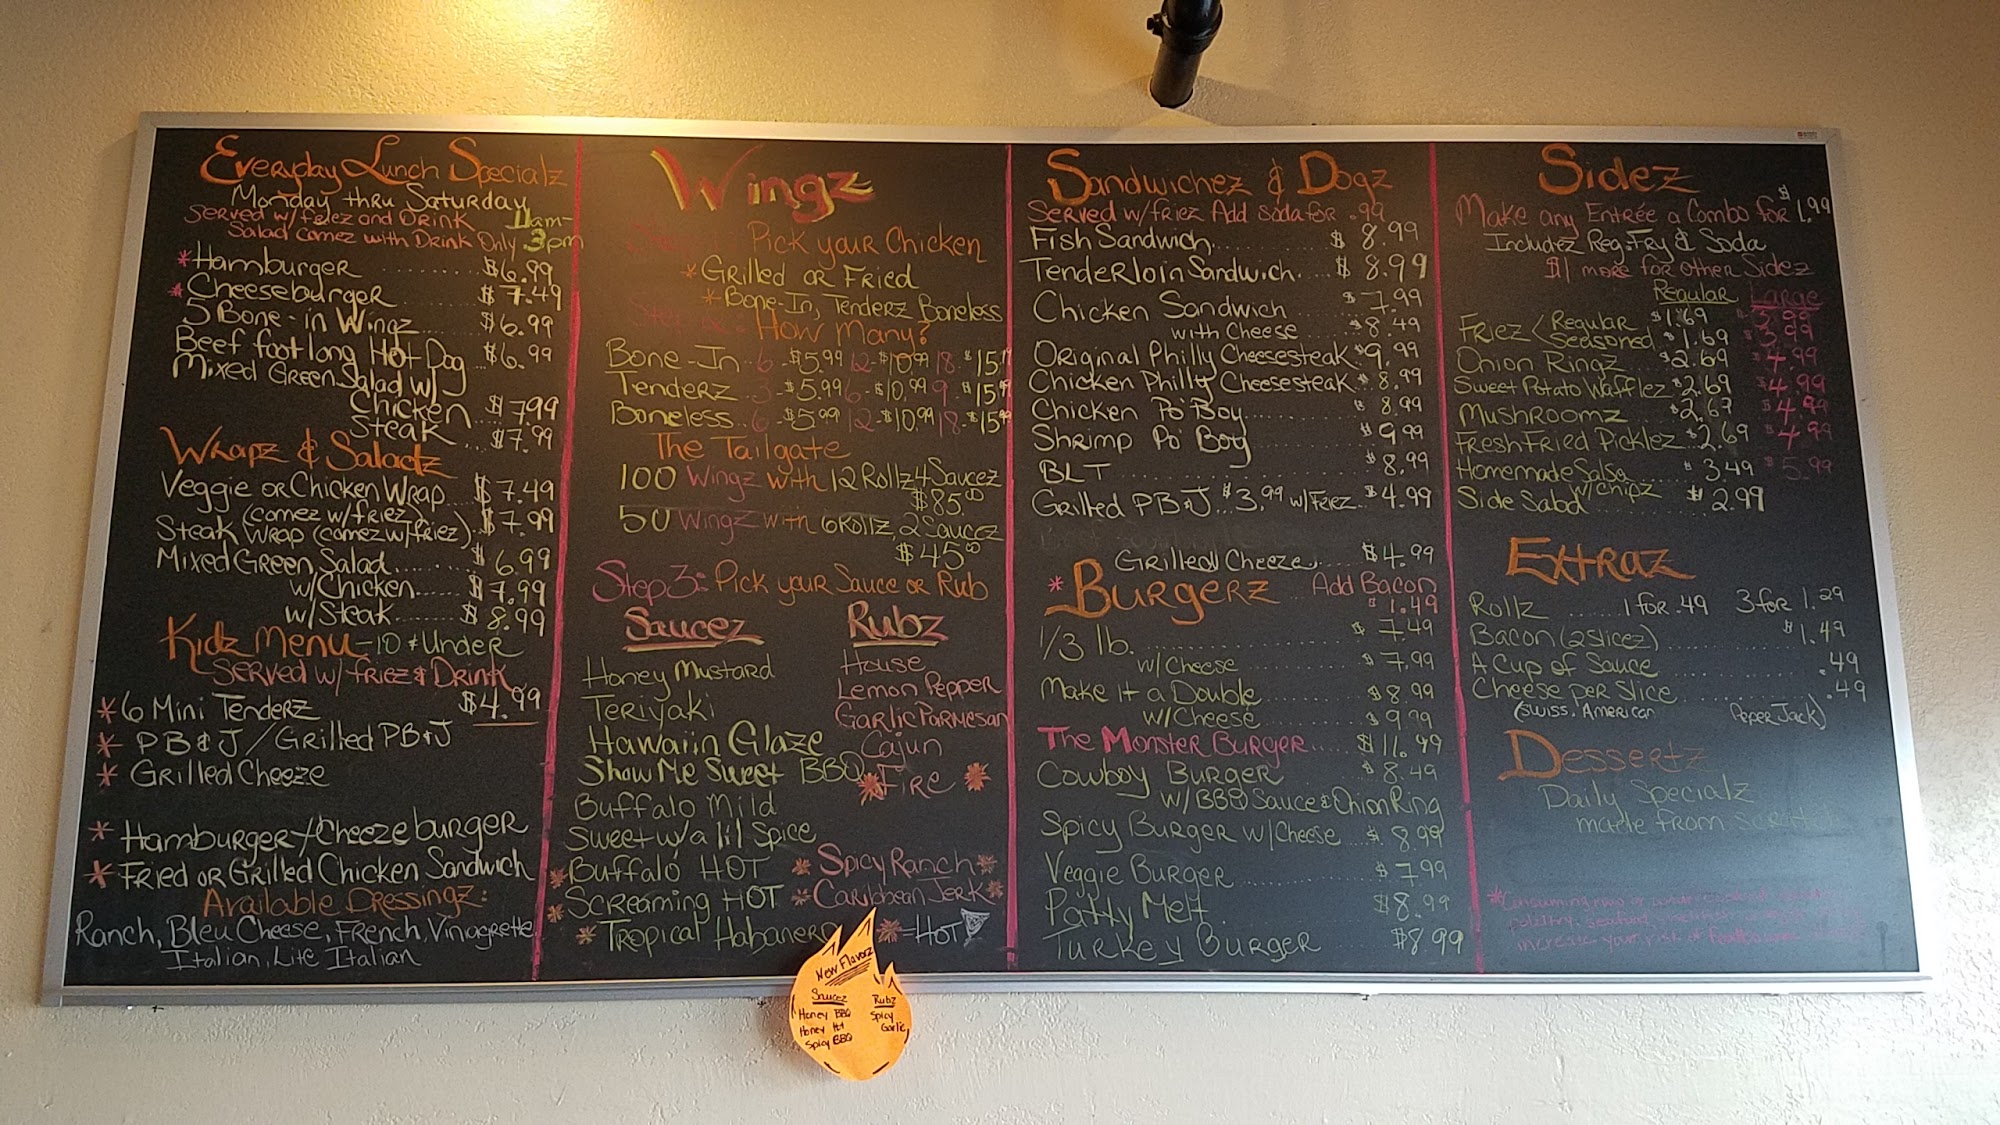 Everyday Lunch Specialz
Monday thru Saturday
Served w/friez and Drink 11am-
Salad comez with Drink Only 3pm
*Hamburger ........ $6.99
*Cheeseburger $7.49
5 Bone-in Wingz..... $6.99
Beef footlong Hot Dog $6.99
Mixed Green Salad w/
Chicken $7.99
Steak .. $7.99
Wrapz & Saladz
Veggie or Chicken Wrap... $7.49
(comez w/friez)
Steak Wrap (comez w/friez).. $7.99
Mixed Green Salad........ $6.99
w/Chicken..... $7.99
w/Steak...... $8.99
Kidz Menu - 10 & Under
Served w/friez & Drink
*6 Mini Tenderz $4.99
* PB&J / Grilled PB&J
* Grilled Cheeze
* Hamburger/Cheezeburger
* Fried or Grilled Chicken Sandwich
Available Dressingz:
Ranch, Bleu Cheese, French, Viniagrette
Italian, Lite Italian
Wingz
Step 1: Pick your Chicken
*Grilled or Fried
*Bone-In, Tenderz Boneless
Step 2: How Many?
Bone-In.. 6-$5.99 12-$10.99 18-$15.99
Tenderz.. 3-$5.99 6-$10.99 9-$15.99
Boneless.. 6-$5.99 12-$10.99 18-$15.99
The Tailgate
100 Wingz with 12 Rollz 4 Saucez
$85.00
50 Wingz with 6 Rollz, 2 Saucez
$45.00
Step 3: Pick your Sauce or Rub
Saucez
Honey Mustard
Teriyaki
Hawaiin Glaze
Show Me Sweet BBQ
Buffalo Mild
Sweet w/a lil Spice
* Buffalo HOT
* Screaming HOT
* Tropical Habanero
Rubz
House
Lemon Pepper
Garlic Parmesan
Cajun
* Fire *
* Spicy Ranch *
* Caribbean Jerk *
* = HOT
New Flavorz
Saucez
Honey BBQ
Honey Hot
Spicy BBQ
Rubz
Spicy
Garlic
Sandwichez & Dogz
Served w/friez Add soda for .99
Fish Sandwich........ $8.99
Tenderloin Sandwich.... $8.99
Chicken Sandwich $7.99
with Cheese $8.49
Original Philly Cheesesteak $9.99
Chicken Philly Cheesesteak $8.99
Chicken Po'Boy........ $8.99
Shrimp Po'Boy $9.99
BLT ........ $8.99
Grilled PB&J $3.99 w/Friez $4.99
Grilled Cheeze.... $4.99
* Burgerz .. Add Bacon
$1.49
1/3 lb. ........ $7.49
w/Cheese ........ $7.99
Make it a Double $8.99
w/Cheese $9.99
The Monster Burger.... $11.99
Cowboy Burger $8.49
w/BBQ Sauce & Onion Ring
Spicy Burger w/Cheese ... $8.99
Veggie Burger........ $7.99
Patty Melt $8.99
Turkey Burger $8.99
Sidez
Make any Entrée a Combo for $1.99
Includez Reg. Fry & Soda
$1 more for other Sidez
Regular Large
Friez < Regular $1.69 $3.99
Seasoned $1.69 $3.99
Onion Ringz $2.69 $4.99
Sweet Potato Wafflez $2.69 $4.99
Mushroomz $2.69 $4.99
Fresh Fried Picklez $2.69 $4.99
Homemade Salsa $3.49 $5.99
w/chipz
Side Salad $2.99
Extraz
Rollz ...... 1 for .49 3 for 1.29
Bacon (2 slicez) ........ $1.49
A Cup of Sauce .49
Cheese per Slice ........ .49
(Swiss, American Peper Jack)
Dessertz
Daily Specialz
made from Scratch
*Consuming raw or
poultry, seafood, shellfish
increase your risk of foodborne